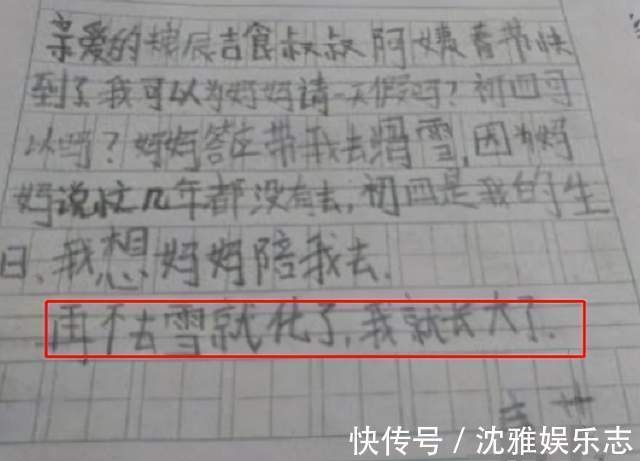 亲爱的粮辰吉食叔叔阿姨春节快
到了我可以为妈妈请一天假吗？初四可
以吗？妈妈答应带我去滑雪,因为妈
妈说忙几年都没有去,初四是我的生
日.我想妈妈陪我去.
再不去雪就化了,我就长大了.
快传号 / 沈雅娱乐志